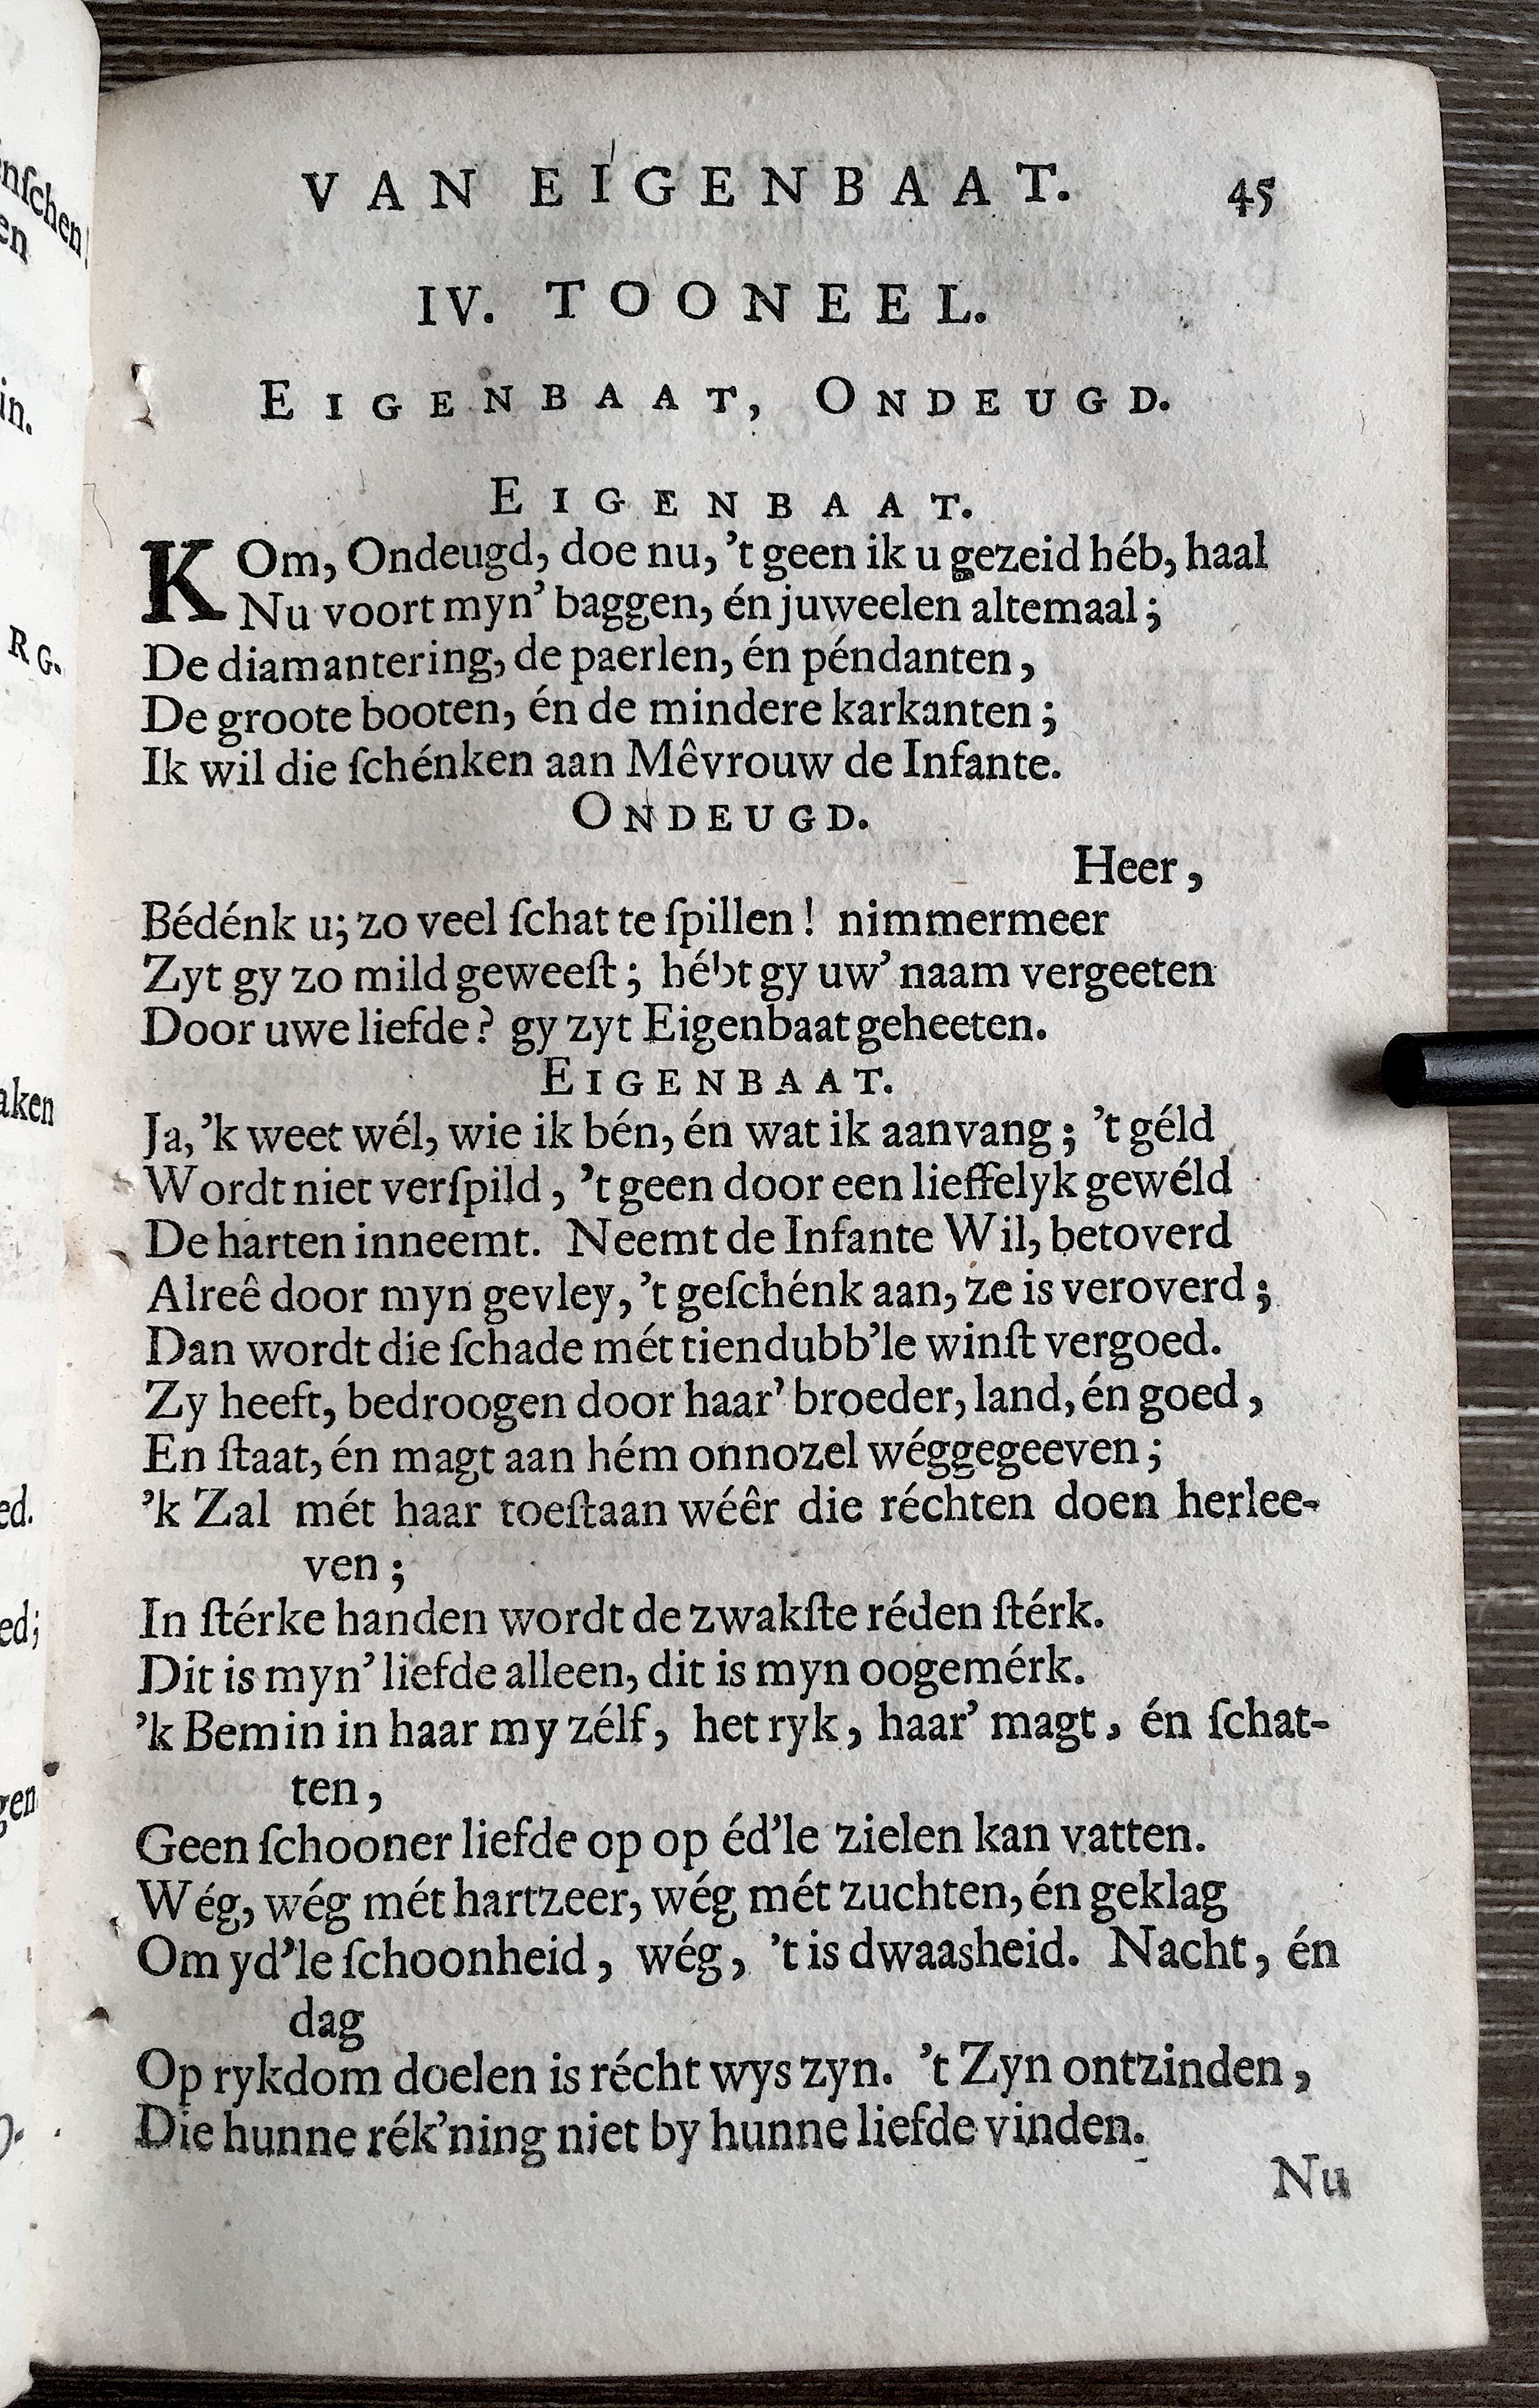 VAN EIGENBAAT. 45
IV. TOONEEL.
EIGENBAAT, ONDEUGD.
EIGENBAAT.
KOm, Ondeugd, doe nu, ’t geen ik u gezeid héb, haal
Nu voort myn’ baggen, én juweelen altemaal;
De diamantering, de paerlen, én péndanten,
De groote booten, én de mindere karkanten;
Ik wil die ſchénken aan Mêvrouw de Infante.
ONDEUGD.
Heer,
Bédénk u; zo veel ſchat te ſpillen! nimmermeer
Zyt gy zo mild geweeſt; hébt gy uw’ naam vergeeten
Door uwe liefde? gy zyt Eigenbaat geheeten.
EIGENBAAT.
Ja, ’k weet wél, wie ik bén, én wat ik aanvang; ’t géld
Wordt niet verſpild, ’t geen door een lieffelyk gewéld
De harten inneemt. Neemt de Infante Wil, betoverd
Alreê door myn gevley, ’t geſchénk aan, ze is veroverd;
Dan wordt die ſchade mét tiendubb’le winſt vergoed.
Zy heeft, bedroogen door haar’ broeder, land, én goed,
En ſtaat, én magt aan hém onnozel wéggegeeven;
’k Zal mét haar toeſtaan wéêr die réchten doen herlee-
ven;
In ſtérke handen wordt de zwakſte réden ſtérk.
Dit is myn’ liefde alleen, dit is myn oogemérk.
’k Bemin in haar my zélf, het ryk, haar’ magt, én ſchat-
ten,
Geen ſchooner liefde op op éd’le zielen kan vatten.
Wég, wég mét hartzeer, wég mét zuchten, én geklag
Om yd’le ſchoonheid, wég, ’t is dwaasheid. Nacht, én
dag
Op rykdom doelen is récht wys zyn. ’t Zyn ontzinden,
Die hunne rék’ning niet by hunne liefde vinden.
Nu